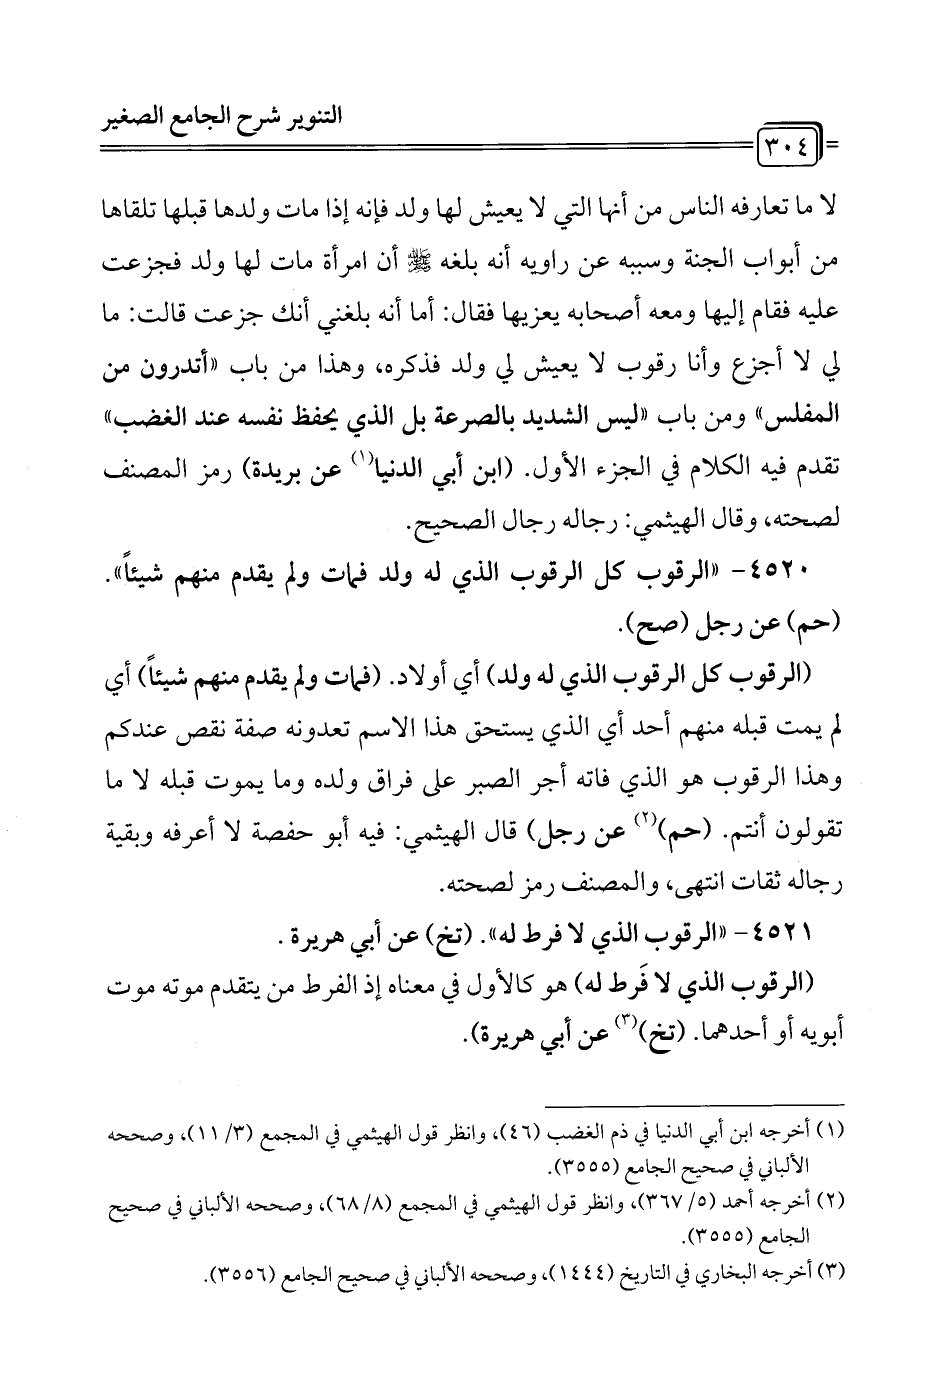 التنوير شرح الجامع الصغير
٣٠٤
لا ما تعارفه الناس من أنها التي لا يعيش لها ولد فإنه إذا مات ولدها قبلها تلقاها
من أبواب الجنة وسببه عن راويه أنه بلغه ﷺ أن امرأة مات لها ولد فجزعت
عليه فقام إليها ومعه أصحابه يعزيها فقال: أما أنه بلغني أنك جزعت قالت: ما
لي لا أجزع وأنا رقوب لا يعيش لي ولد فذكره، وهذا من باب «أتدرون من
المفلس» ومن باب «ليس الشديد بالصرعة بل الذي يحفظ نفسه عند الغضب»
تقدم فيه الكلام في الجزء الأول. (ابن أبي الدنيا(١) عن بريدة) رمز المصنف
لصحته، وقال الهيثمي: رجاله رجال الصحيح.
٤٥٢٠- «الرقوب كل الرقوب الذي له ولد فمات ولم يقدم منهم شيئاً».
(حم) عن رجل (صح).
(الرقوب كل الرقوب الذي له ولد) أي أولاد. (فمات ولم يقدم منهم شيئاً) أي
لم يمت قبله منهم أحد أي الذي يستحق هذا الاسم تعدونه صفة نقص عندكم
وهذا الرقوب هو الذي فاته أجر الصبر على فراق ولده وما يموت قبله لا ما
تقولون أنتم. (حم)(٢) عن رجل) قال الهيثمي: فيه أبو حفصة لا أعرفه وبقية
رجاله ثقات انتهى، والمصنف رمز لصحته.
٤٥٢١- «الرقوب الذي لا فرط له». (تخ) عن أبي هريرة .
(الرقوب الذي لا فَرط له) هو كالأول في معناه إذ الفرط من يتقدم موته موت
أبويه أو أحدهما. (تخ)(٣) عن أبي هريرة).
(١) أخرجه ابن أبي الدنيا في ذم الغضب (٤٦)، وانظر قول الهيثمي في المجمع (٣/ ١١)، وصححه
الألباني في صحيح الجامع (٣٥٥٥).
(٢) أخرجه أحمد (٥/ ٣٦٧)، وانظر قول الهيثمي في المجمع (٨/ ٦٨)، وصححه الألباني في صحيح
الجامع (٣٥٥٥).
(٣) أخرجه البخاري في التاريخ (١٤٤٤)، وصححه الألباني في صحيح الجامع (٣٥٥٦).